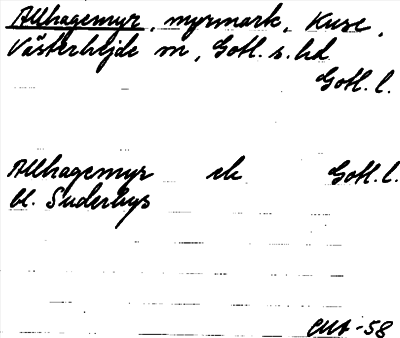 Allhagemyr, myrmark, Kuse,
Västerhejde sn, Gotl. s. hd
Gotl. l.
Allhagemyr ek Gotl. l.
bl. Suderbys
-58